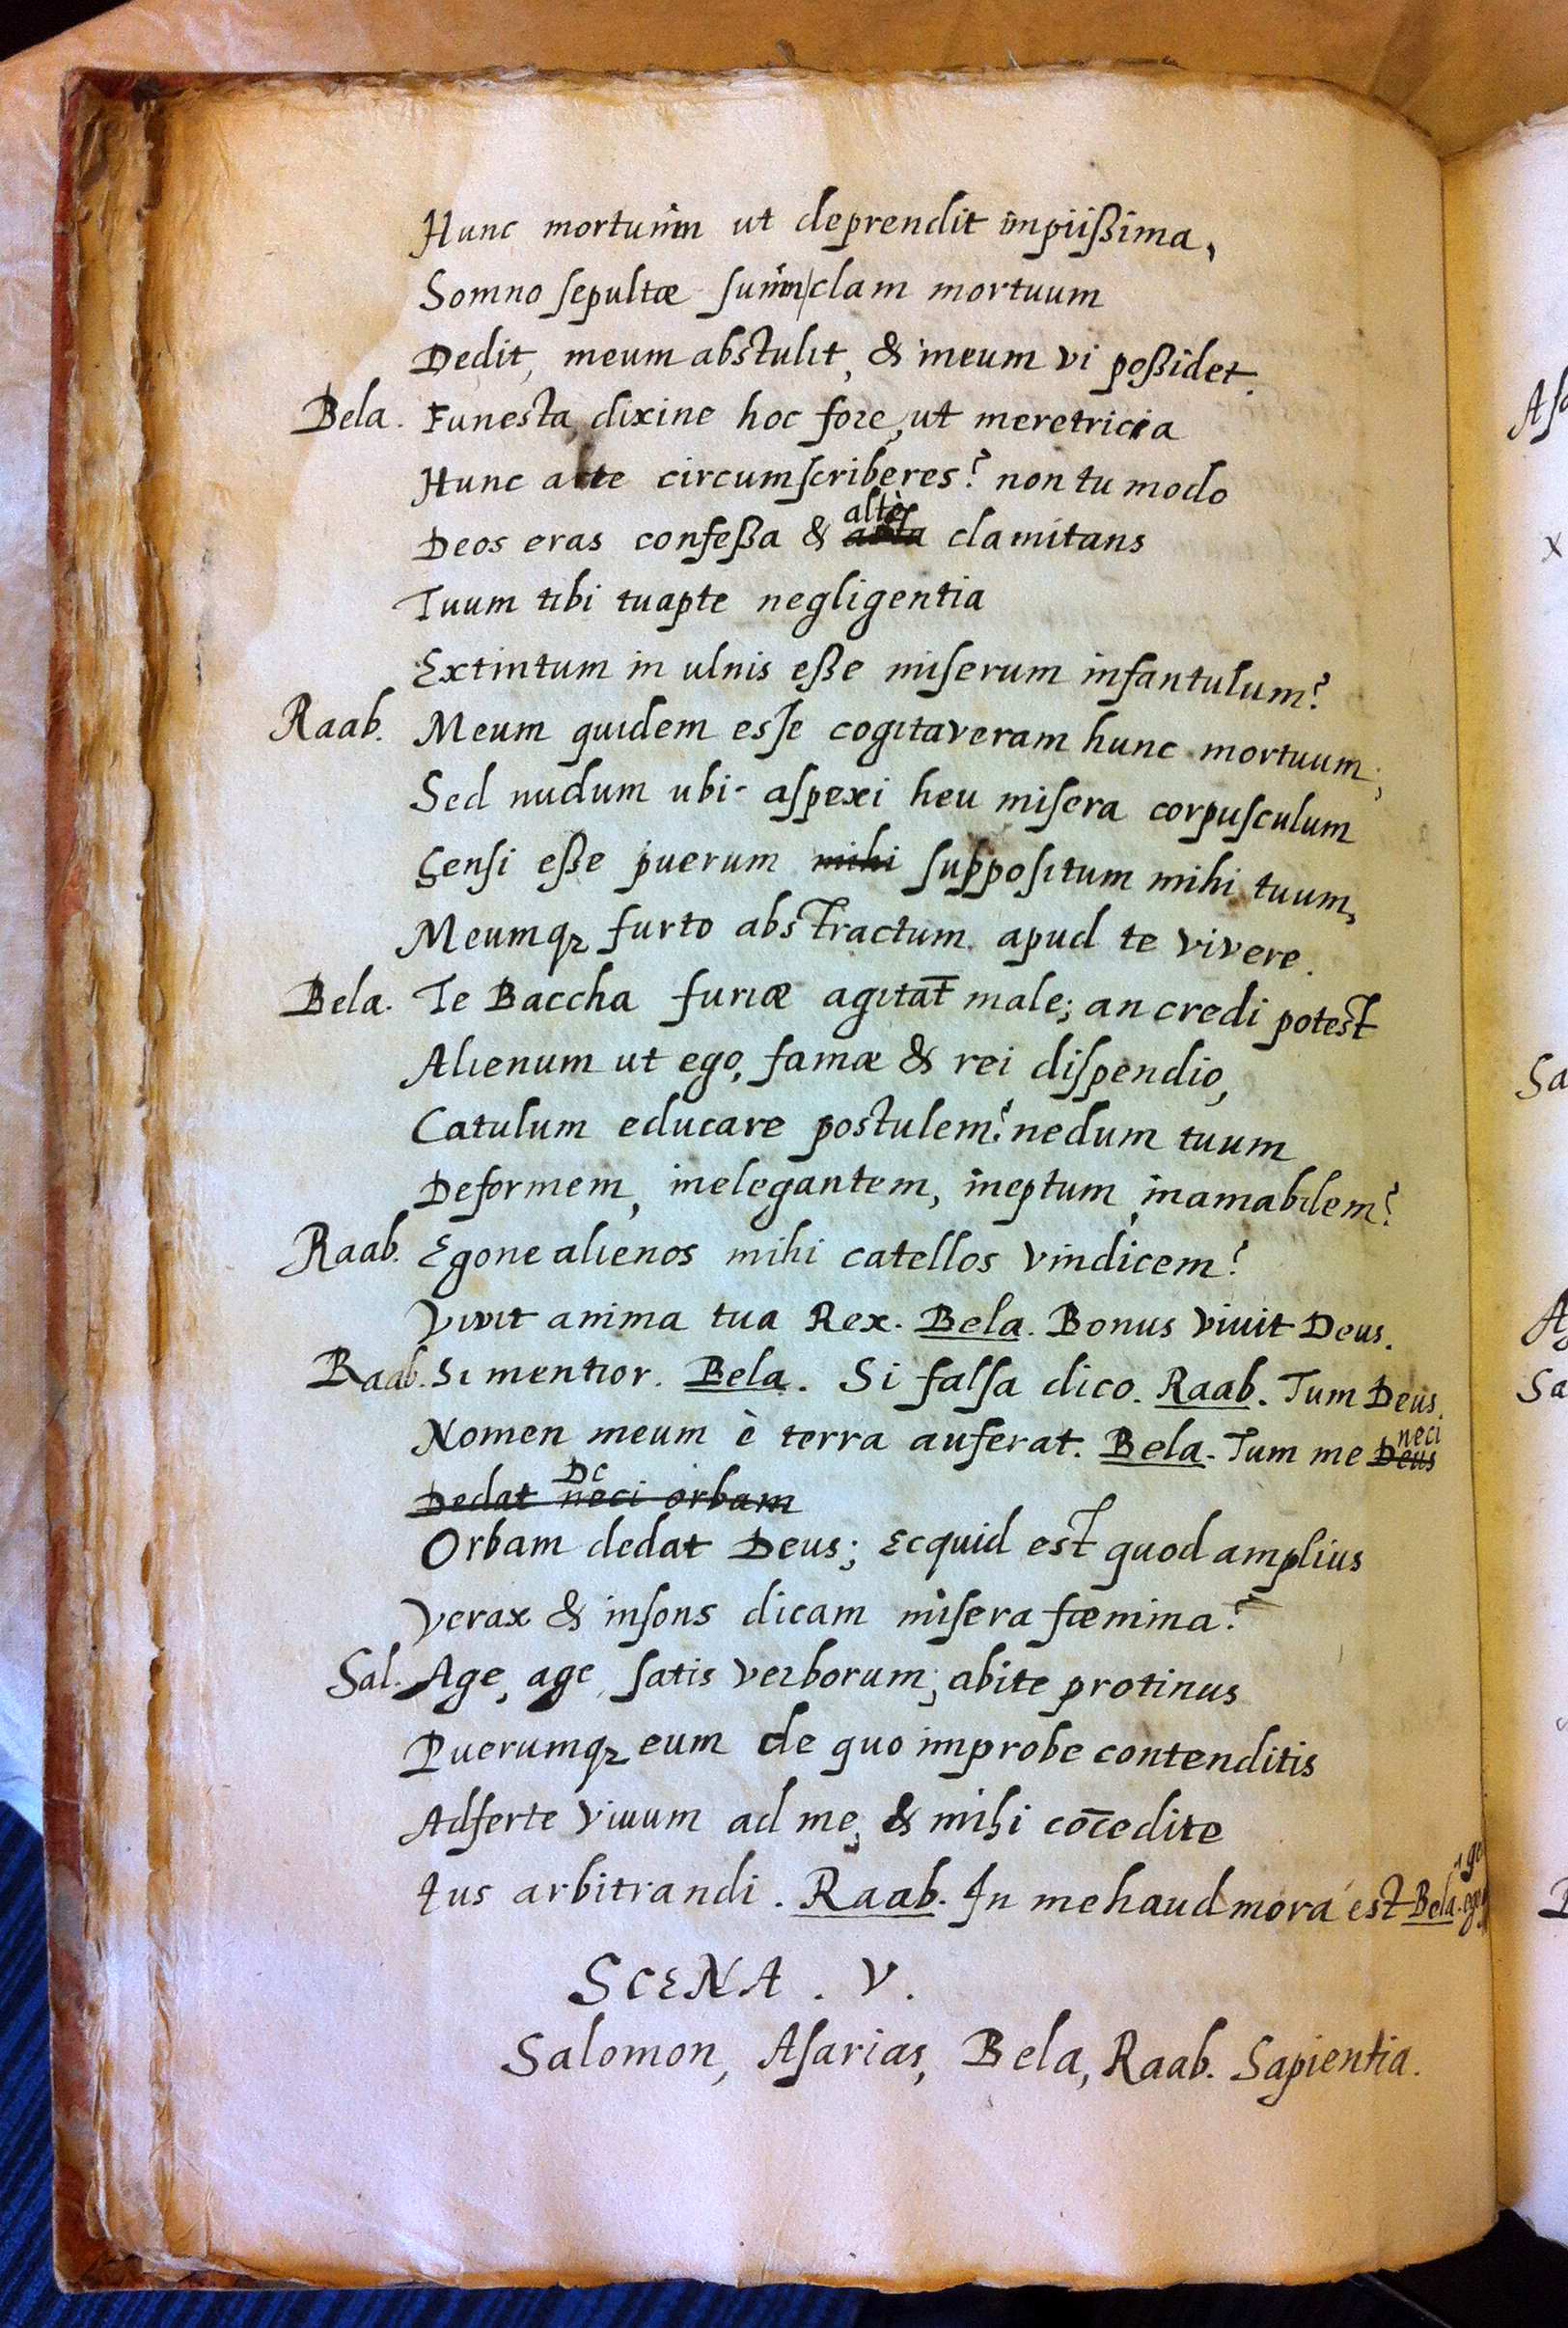 Hunc mortuum ut deprendit impiißima,
Somno sepultæ suum clam mortuum
Dedit, meum abstulit, & meum vi poßidet.
Bela. Funesta, dixine hoc fore, ut meretricia
Hunc arte circumscriberes? non tu modo
altè
Deos eras confeßa & clamitans
Tuum tibi tuapte negligentia
Extintum in ulnis eße miserum infantulum?
Raab. Meum quidem esse cogitaveram hunc mortuum;
Sed nudum ubi aspexi heu misera corpusculum
Sensi eße puerum mihi suppositum mihi tuum,
Meumqz furto abstractum apud te vivere.
Bela. Te Baccha furiæ agitāt male; an credi potest
Alienum ut ego, famæ & rei dispendio,
Catulum educare postulem? nedum tuum
Deformem, inelegantem, ineptum, inamabilem?
Raab. Egone alienos mihi catellos vindicem?
Vivit anima tua Rex. Bela. Bonus viuit Deus.
Raab. Si mentior. Bela. Si falsa dico. Raab. Tum Deus
neci
Nomen meum è terra auferat. Bela. Tum me Deus
De
Dedat neci orbam
Orbam dedat Deus; Ecquid est quod amplius
Verax & insons dicam misera fœmina?
Sal. Age, age, satis verborum; abite protinus
Puerumqz eum de quo improbe contenditis
Adferte viuum ad me, & mihi cōcedite
Ius arbitrandi. Raab. In me haud mora est Bela.
SCENA. V.
Salomon, Asarias, Bela, Raab. Sapientia.